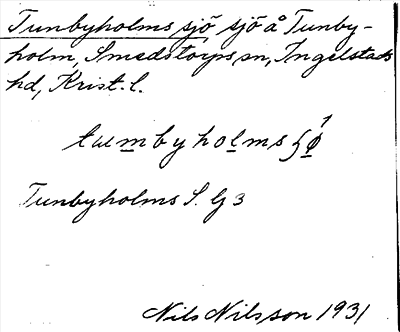 Tunbyholms sjö sjö å Tunby-
holm, Smedstorps sn, Ingelstads
hd, Krist. l.
Tunbyholms S. G3
Nils Nilsson 1931